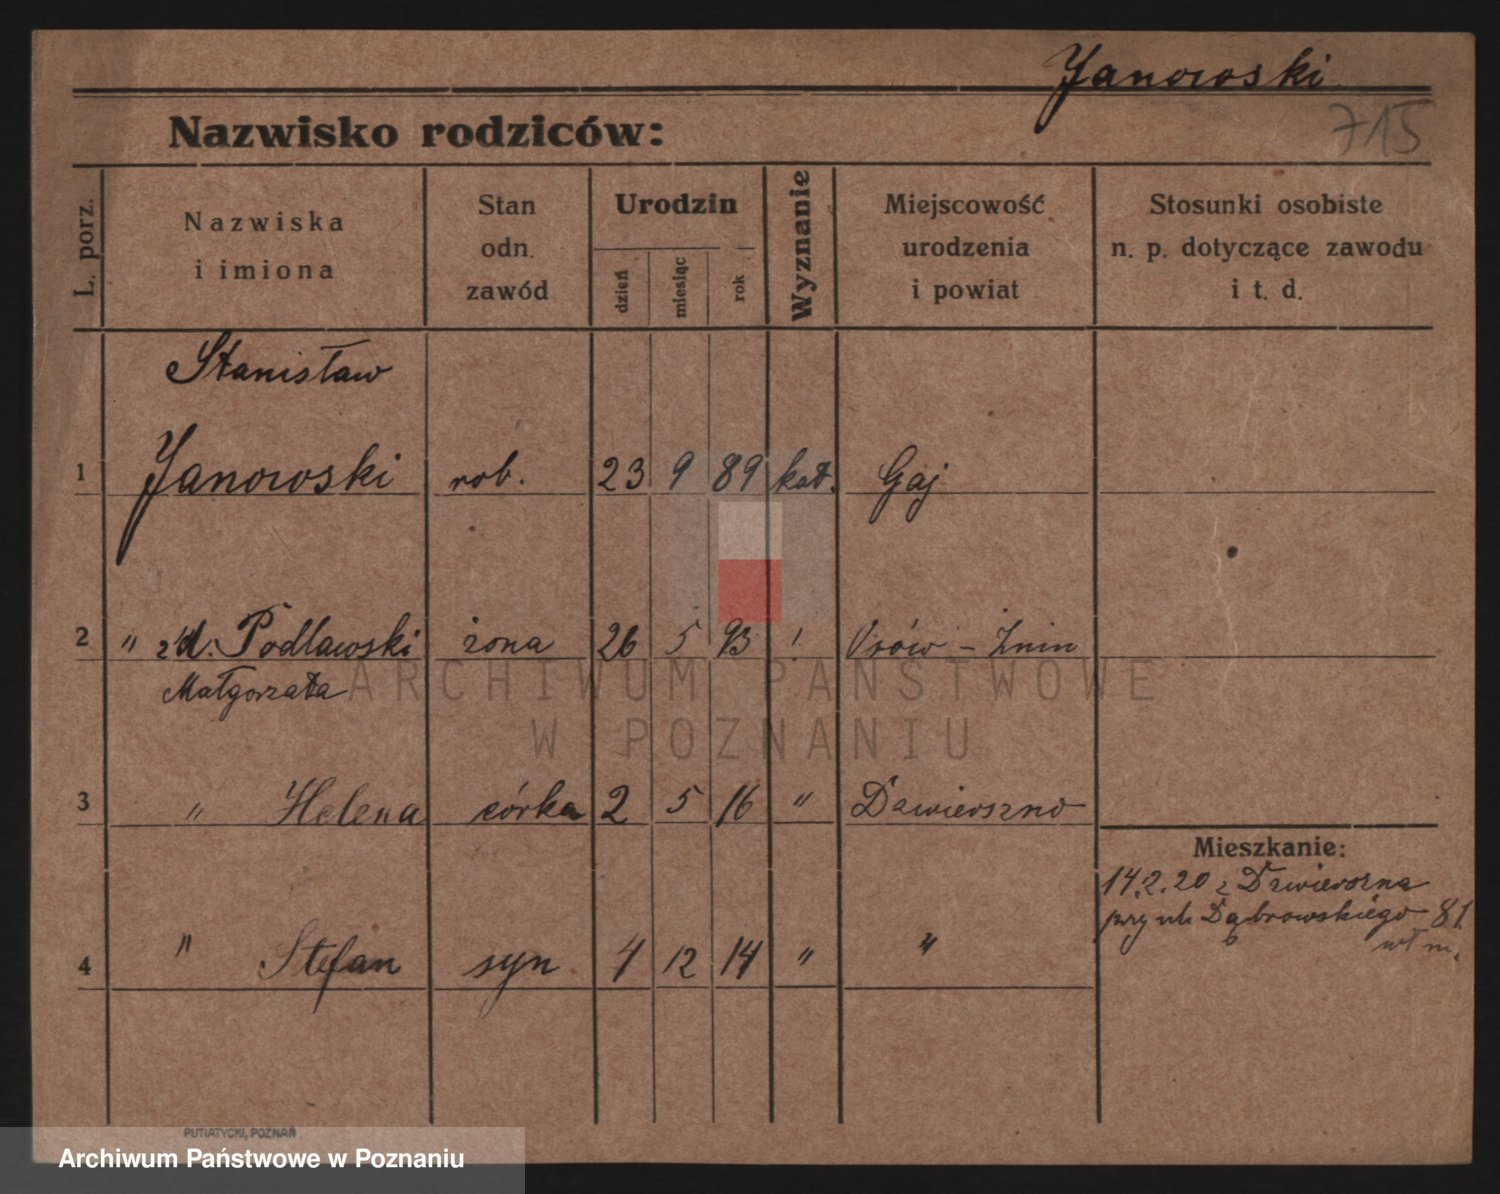 Janowski
715
Nazwisko rodziców:
L. porz.
Nazwiska
i imiona
Stan
odn.
zawód
Urodzin
dzień
miesiąc
rok
Wyznanie
Miejscowość
urodzenia
i powiat
Stosunki osobiste
n. p. dotyczące zawodu
i t. d.
Stanisław
1 Janowski rob. 23 9 89 kat. Gaj
2 " Podlawski żona 26 5 93 - Żnin
Małgorzata
ARCHIWUM PAŃSTWOWE
W POZNANIU
3 " Helena córka 2 5 16 " Dzwierszno
Mieszkanie:
14.2.20 z Dzwierszna
przy ul. Dąbrowskiego 81
wł m.
4 " Stefan syn 4 12 14 " "
PUTIATYCKI, POZNAŃ
Archiwum Państwowe w Poznaniu